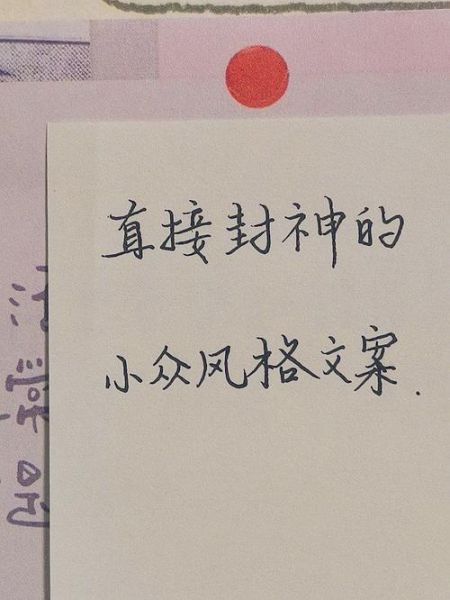 直接封神的
小众风格文案.